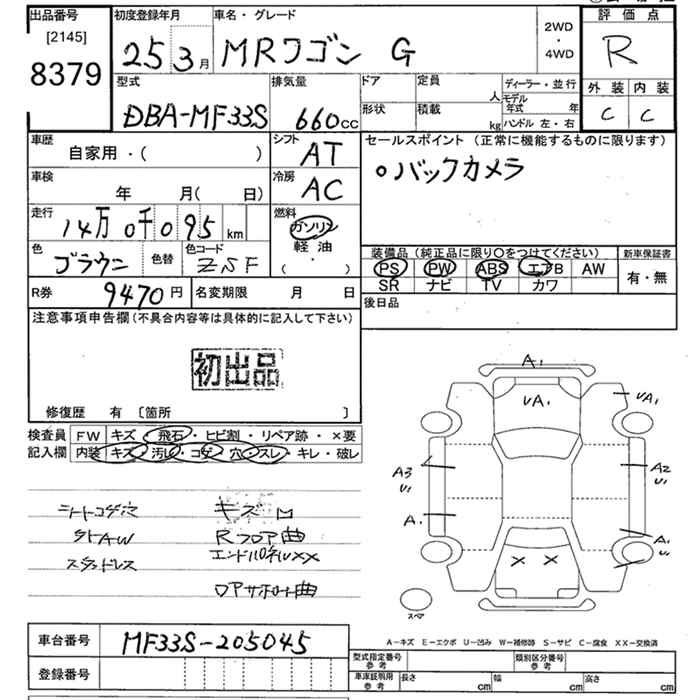 出品番号
[2145]
8379
初度登録年月
25 3月
車名・グレード
MRワゴン G
2WD
・
4WD
評価点
R
外装 内装
C C
型式
DBA-MF33S
排気量
660cc
ドア
形状
定員
人
積載
kg
ディーラー・並行
モデル年式 年
ハンドル 左・右
車歴
自家用・( )
シフト
AT
セールスポイント (正常に機能するものに限ります)
○バックカメラ
車検
年 月( 日)
冷房
AC
走行
14万 0千095 km
燃料
ガソリン
軽油
・
( )
色
ブラウン
色替
色コード
ZSF
装備品 (純正品に限り○をつけてください)
PS PW ABS エアB AW
SR ナビ TV カワ
新車保証書
有・無
R券
9470円
名変期限 月 日
後日品
注意事項申告欄(不具合内容等は具体的に記入して下さい)
初出品
修復歴 有 〔箇所 〕
検査員
記入欄
FW キズ・飛石・ヒビ割・リペア跡・×要
内装 キズ・汚レ・コゲ・穴・スレ・キレ・破レ
シートコゲ穴
キズ
Rフロア曲
スタッドレス
エンドパネルXX
ロアサポート曲
A1
UA1
UA1
A3
U1
A2
U1
A1
A1
U1
× ×
スペア
A-キズ E-エクボ U-凹み W-補修跡 S-サビ C-腐食 XX-交換済
車台番号
MF33S-205045
登録番号
型式指定番号
参考
類別区分番号
参考
車庫証明用
参考
長さ cm 幅 cm 高さ cm